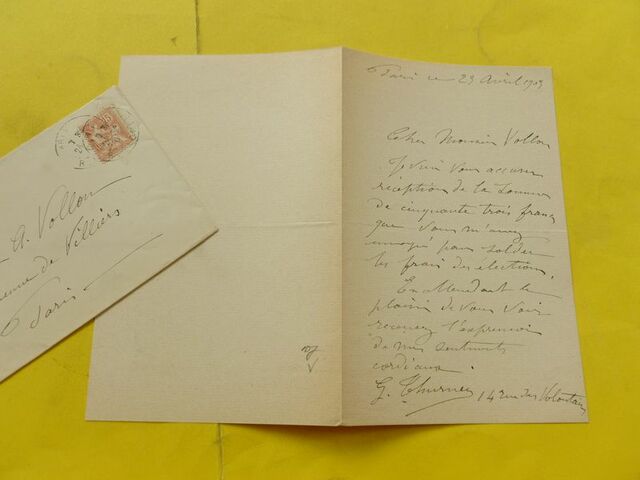 A. Vollon
Avenue de Villiers
Paris
Paris ce 23 Avril 1903
Cher Monsieur Vollon
Je viens vous accuser
réception de la somme
de cinquante trois francs
que vous m'avez
envoyé pour solder
les frais des élections.
En attendant le
plaisir de vous voir
recevez l'expression
de mes sentiments
cordiaux.
G. Thurner 14 rue des Volontaires